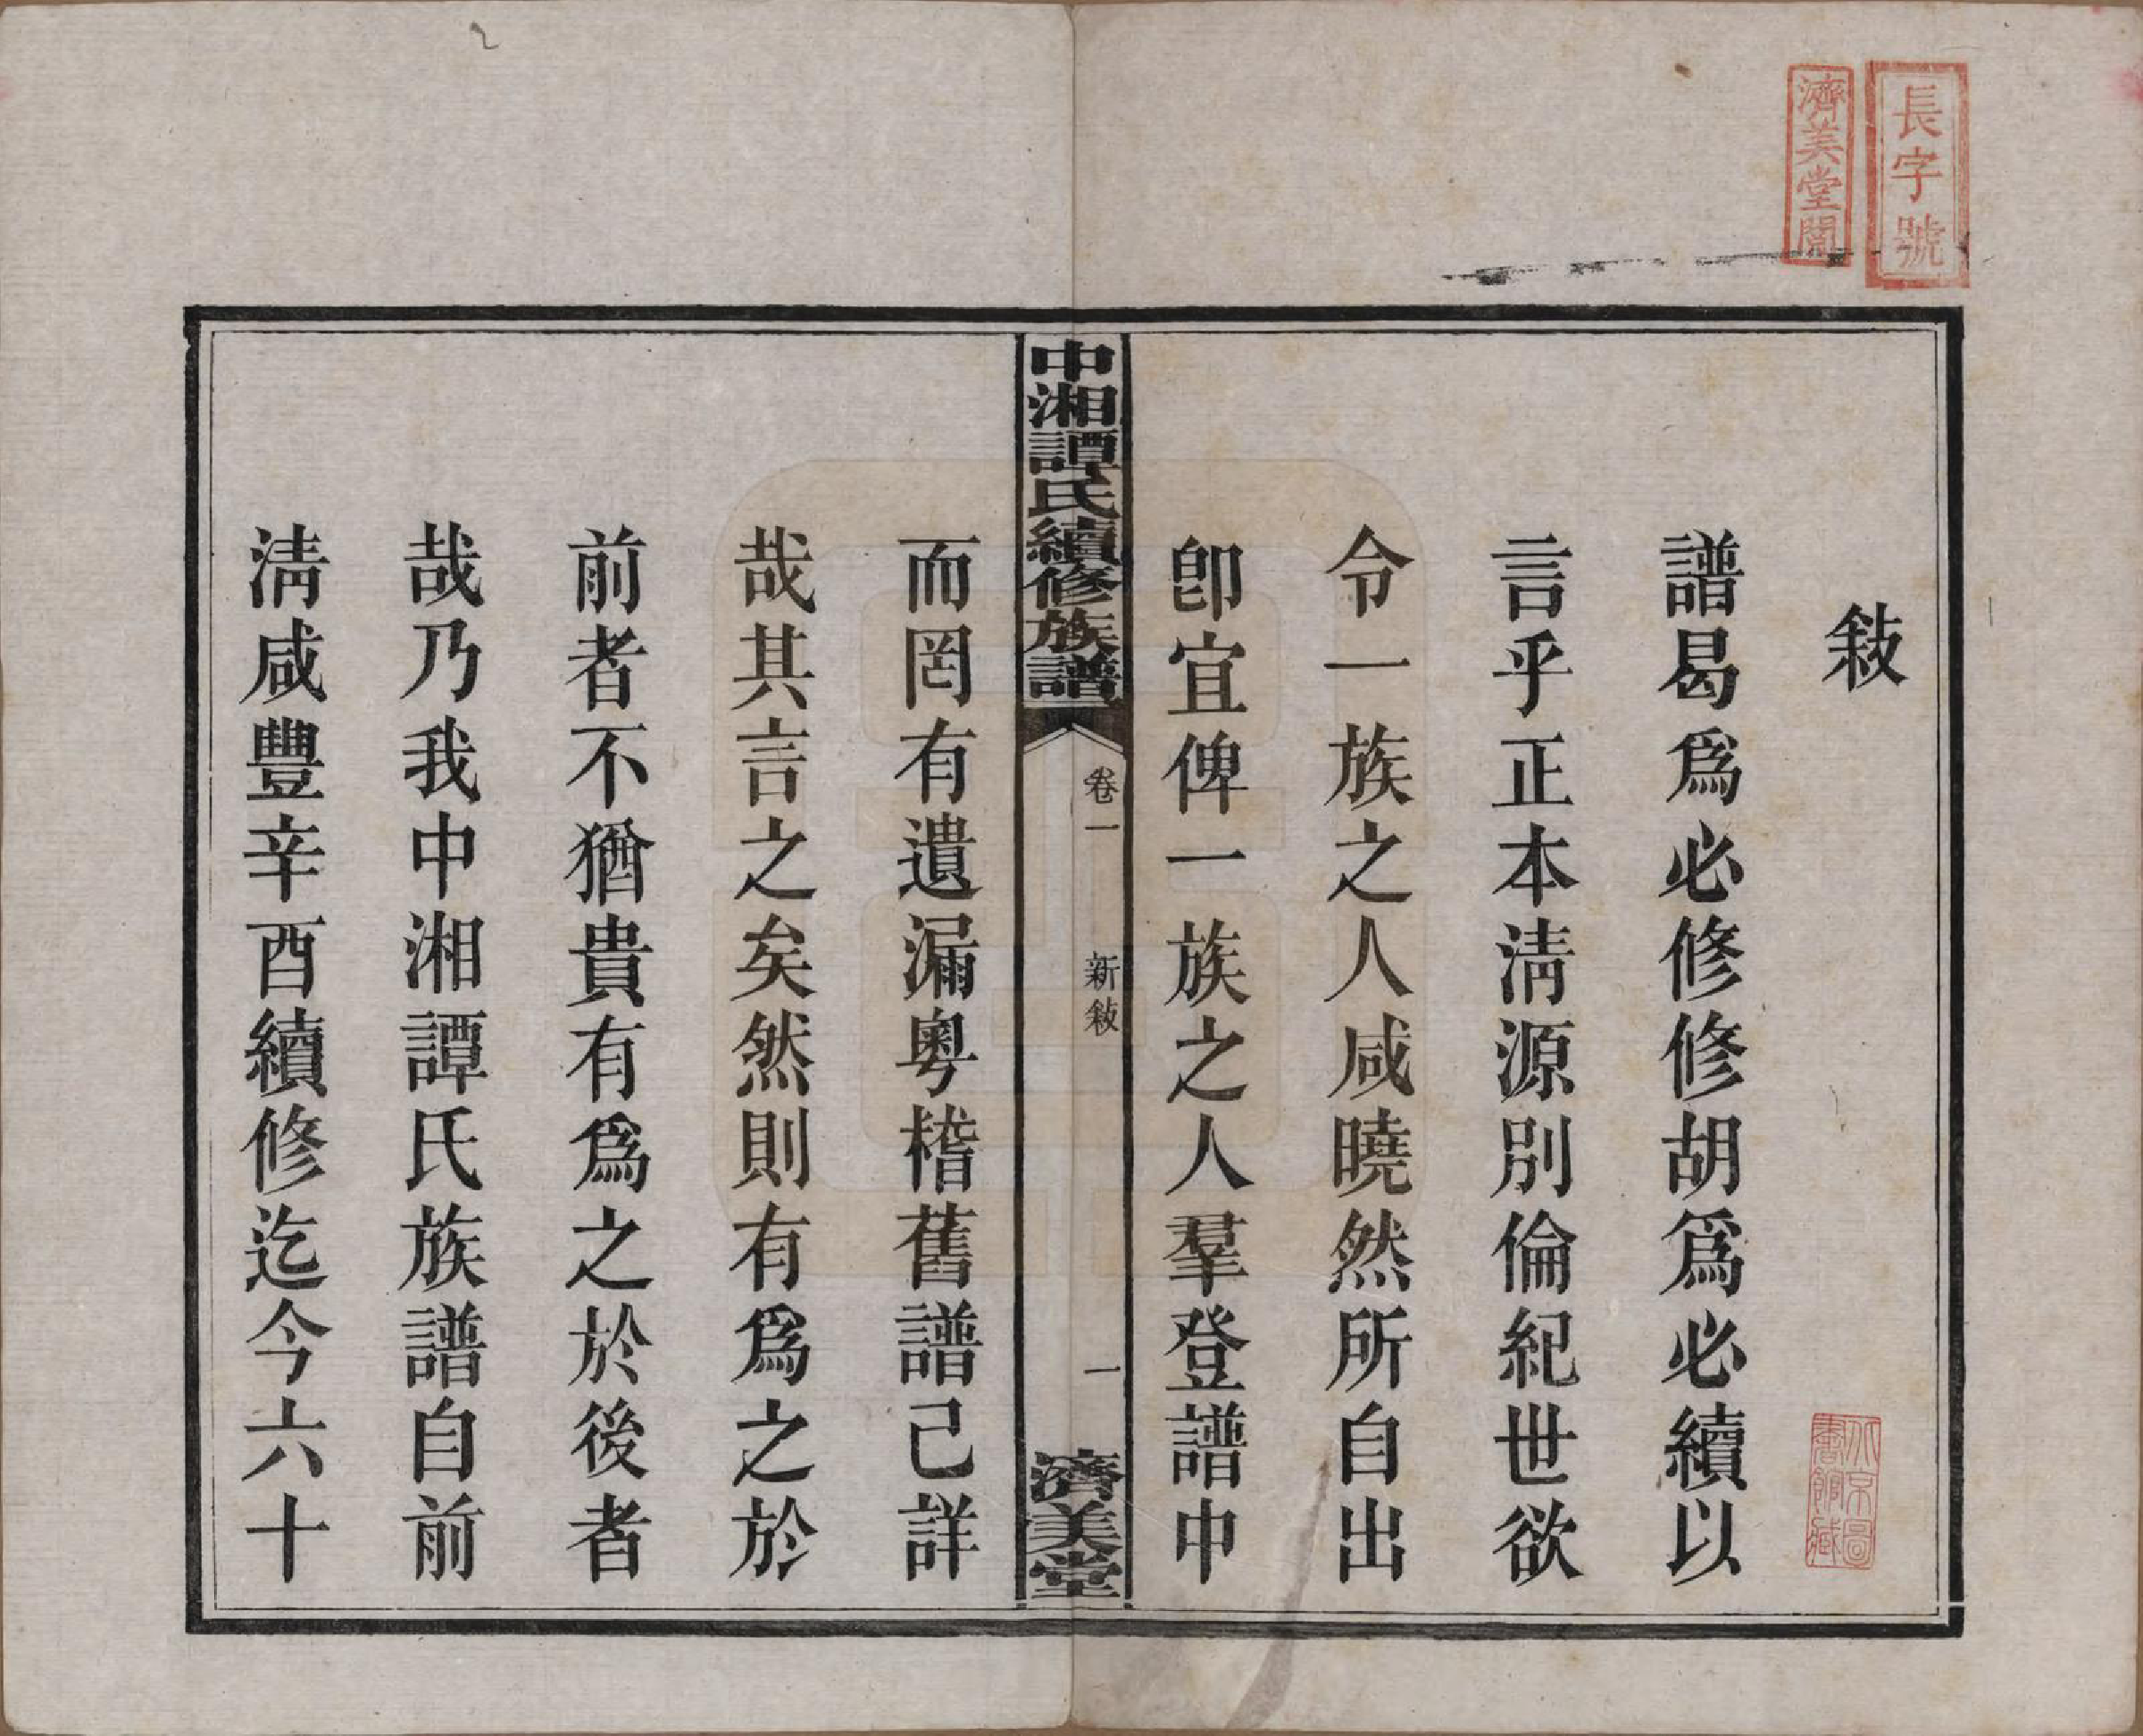 長字號
濟美堂閤
敍
譜曷爲必修修胡爲必續以
言乎正本淸源別倫紀世欲
令一族之人咸曉然所自出
卽宜俾一族之人羣登譜中
中湘譚氏續修族譜
卷一
新敍
一
濟美堂
而罔有遺漏粤稽舊譜己詳
哉其言之矣然則有爲之於
前者不猶貴有爲之於後者
哉乃我中湘譚氏族譜自前
淸咸豐辛酉續修迄今六十
北京圖
書館藏